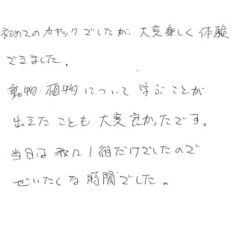 初めてのカヤックでしたが、大変楽しく体験
できました。
動物・植物について学ぶことが
出来たことも大変良かったです。
当日は私達1組だけでしたので
ぜいたくな時間でした。